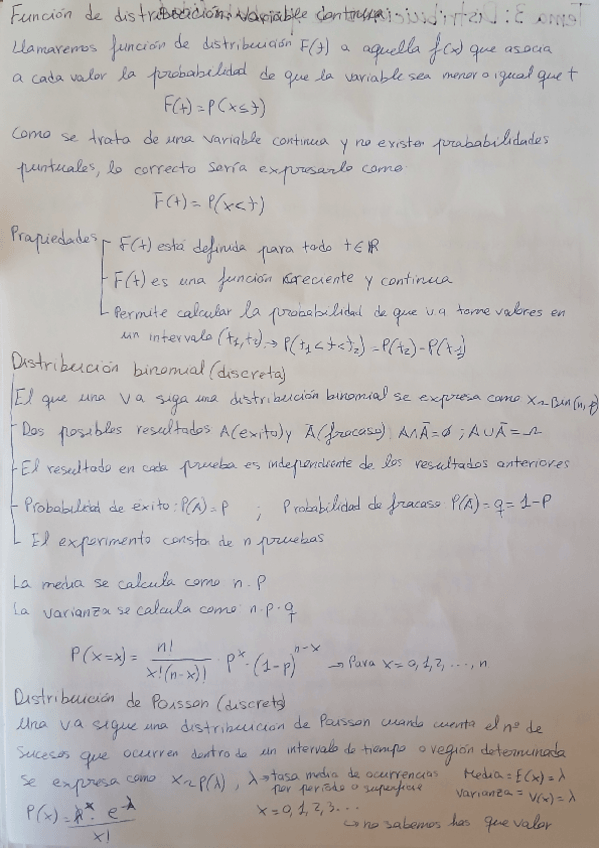 Función de distribución, variable continua:
Llamaremos función de distribución F(t) a aquella f(x) que asocia
a cada valor la probabilidad de que la variable sea menor o igual que t
F(t) = P(x ≤ t)
Como se trata de una variable continua y no existen probabilidades
puntuales, lo correcto sería expresarlo como
F(t) = P(x < t)
Propiedades
F(t) está definida para todo t ∈ R
F(t) es una función creciente y continua
Permite calcular la probabilidad de que v.a tome valores en
un intervalo (t₁, t₂) → P(t₁ < t < t₂) = P(t₂) - P(t₁)
Distribución binomial (discreta)
El que una va siga una distribución binomial se expresa como X ~ Bin(n, p)
Dos posibles resultados A (exito) y Ā (fracaso) A∧Ā = ∅ ; A∪Ā = Ω
El resultado en cada prueba es independiente de los resultados anteriores
Probabilidad de éxito: P(A) = P ; Probabilidad de fracaso P(Ā) = q = 1 - P
El experimento consta de n pruebas
La media se calcula como n · p
La varianza se calcula como n · p · q
P(x=x) = n! / x!(n-x)! · pˣ · (1-p)ⁿ⁻ˣ → Para x = 0, 1, 2, ..., n
Distribución de Poisson (discreta)
Una va sigue una distribución de Poisson cuando cuenta el nº de
sucesos que ocurren dentro de un intervalo de tiempo o región determinada
Se expresa como X ~ P(λ), λ → tasa media de ocurrencias por periodo o superficie
Media = E(x) = λ
Varianza = V(x) = λ
P(x) = λˣ · e^-λ / x!
x = 0, 1, 2, 3...
→ no sabemos has que valor